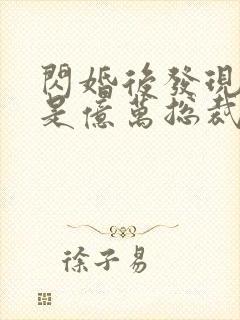 閃婚後發現
是億萬總裁
徐子易